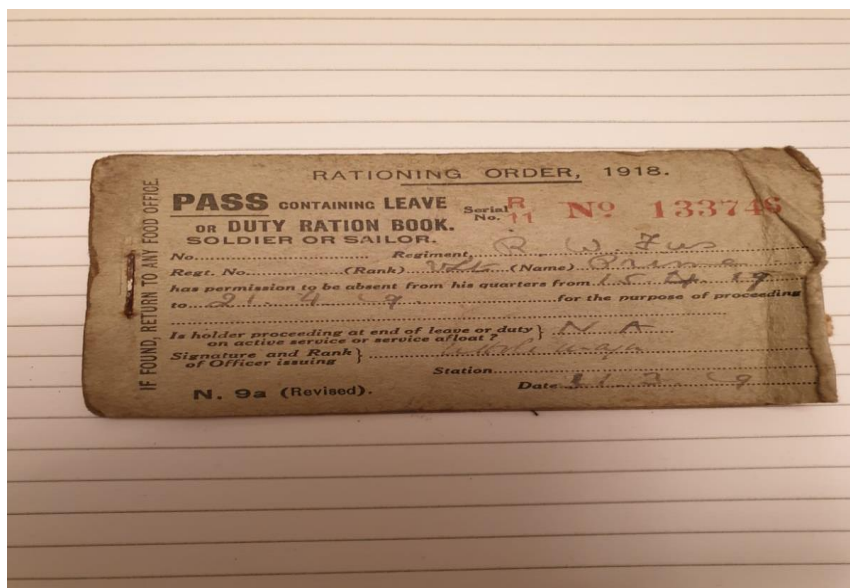 RATIONING ORDER, 1918.
PASS CONTAINING LEAVE
OR DUTY RATION BOOK.
SOLDIER OR SAILOR.
Serial No. R 11 No 133746
No. Regiment R. W. Fus
Regt. No. (Rank) (Name)
has permission to be absent from his quarters from 15 4 19
to 21 4 19 for the purpose of proceeding
Is holder proceeding at end of leave or duty } N A
on active service or service afloat?
Signature and Rank }
of Officer issuing
Station
N. 9a (Revised). Date
IF FOUND, RETURN TO ANY FOOD OFFICE.